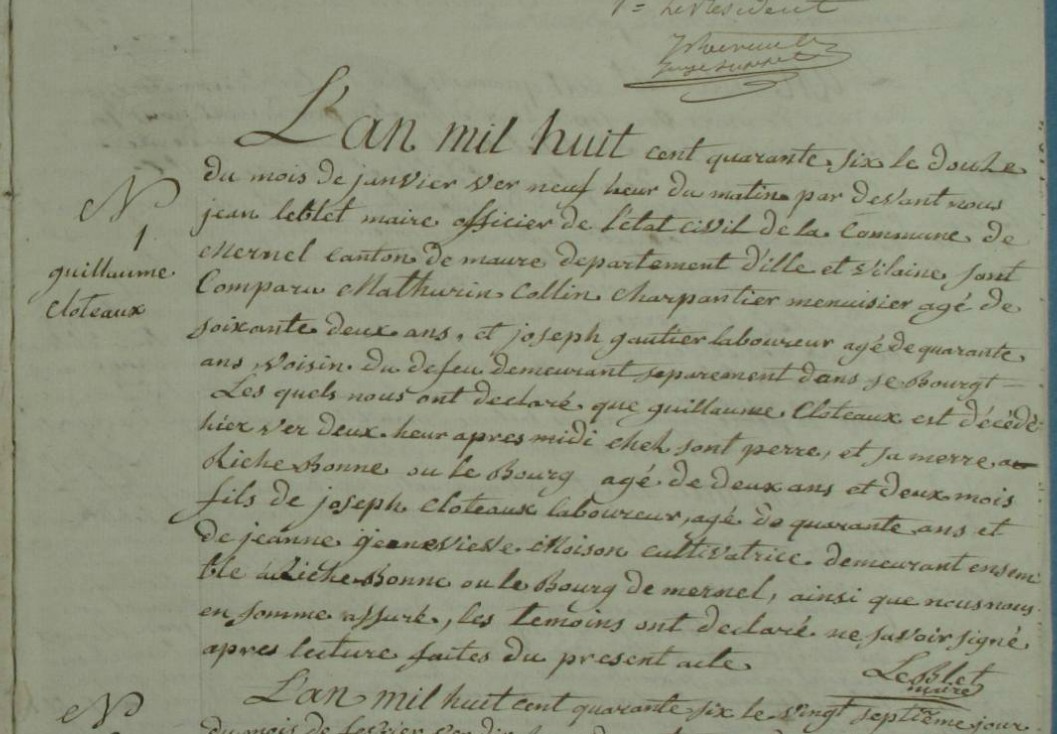 Le Président
L'an mil huit cent quarante six le douze
du mois de janvier ver neuf heur du matin par devant nous
jean leblet maire officier de l'état civil de la Commune de
Mernel canton de maure departement d'ille et vilaine sont
Comparu Mathurin Collin charpantier menuisier agé de
soixante deux ans, et joseph gautier laboureur agé de quarante
ans voisin du defeu demeurant separement dans se Bourgt
Les quels nous ont declaré que guillaume Cloteaux est décédé
hier ver deux heur apres midi chez sont perre, et sa merre au
Riche Bonne ou le Bourg agé de deux ans et deux mois
fils de joseph cloteaux laboureur, agé de quarante ans et
de jeanne geenevieve Moison cultivatrice demeurant ensem
ble a Riche Bonne ou le Bourg de mernel, ainsi que nous nous
en somme assuré, les temoins ont declaré ne savoir signé
apres lecture faites du present acte
Le Blet
maire
N
1
guillaume
Cloteaux
L'an mil huit cent quarante six le vingt septième jour
N
du mois de fevrier ver